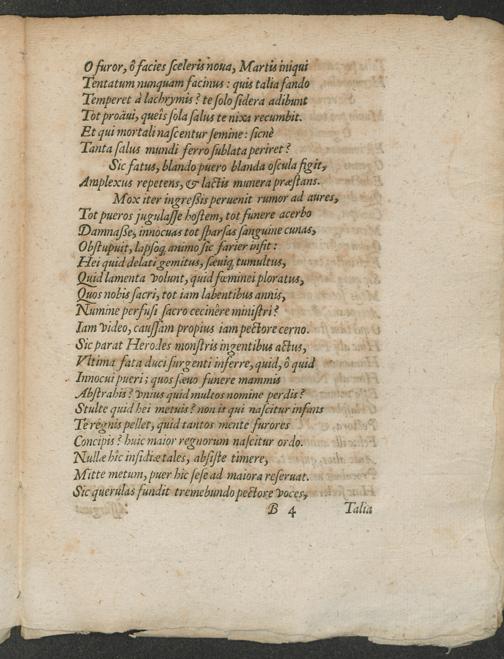 O furor, ô facies sceleris noua, Martis iniqui
Tentatum nunquam facinus: quis talia fando
Temperet à lachrymis? te solo sidera adibunt
Tot proàui, queis sola salus te nixa recumbit.
Et qui mortali nascentur semine: sicnè
Tanta salus mundi ferro sublata periret?
Sic fatus, blando puero blanda oscula figit,
Amplexus repetens, & lactis munera præstans.
Mox iter ingressis peruenit rumor ad aures,
Tot pueros jugulasse hostem, tot funere acerbo
Damnasse, innocuas tot sparsas sanguine cunas,
Obstupuit, lapsoq; animo sic farier infit:
Hei quid delati gemitus, sæuiq; tumultus,
Quid lamenta volunt, quid fœminei ploratus,
Quos nobis sacri, tot iam labentibus annis,
Numine perfusi sacro cecinêre ministri?
Iam video, caussam propius iam pectore cerno.
Sic parat Herodes monstris ingentibus actus,
Vltima fata duci surgenti inferre, quid, ô quid
Innocui pueri; quos sæuo funere mammis
Abstrahis? vnius quid multos nomine perdis?
Stulte quid hei metuis? non is qui nascitur infans
Te regnis pellet, quid tantos mente furores
Concipis? huic maior regnorum nascitur ordo.
Nullæ hic insidiæ tales, absiste timere,
Mitte metum, puer hic sese ad maiora reseruat.
Sic querulas fundit tremebundo pectore voces,
B 4 Talia